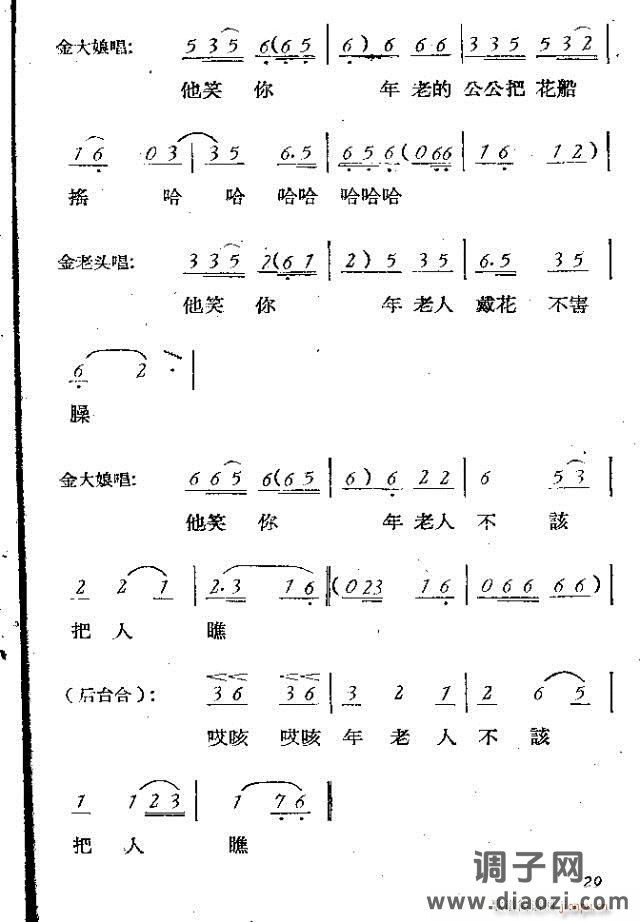 金大娘唱: 5 3 5 6 (6 5 | 6) 6 6 6 | 3 3 5 5 3 2 |
他笑 你 年 老的 公公把 花船
1 6 0 3 | 3 5 6. 5 | 6 5 6 (0 6 6 | 1 6 1 2) |
搖 哈 哈 哈哈 哈哈哈
金老头唱: 3 3 5 2 (6 1 | 2) 5 3 5 | 6. 5 3 5 |
他笑 你 年 老人 戴花 不害
6 2 |
臊
金大娘唱: 6 6 5 6 (6 5 | 6) 6 2 2 | 6 5 3 |
他笑 你 年 老人 不 該
2 2 1 | 2. 3 1 6 || (0 2 3 1 6 | 0 6 6 6 6) |
把 人 瞧
(后台合): 3 6 3 6 | 3 2 1 | 2 6 5 |
哎咳 哎咳 年 老 人 不 該
1 1 2 3 | 1 7 6 ||
把 人 瞧
调子网
20
www.diaozi.com